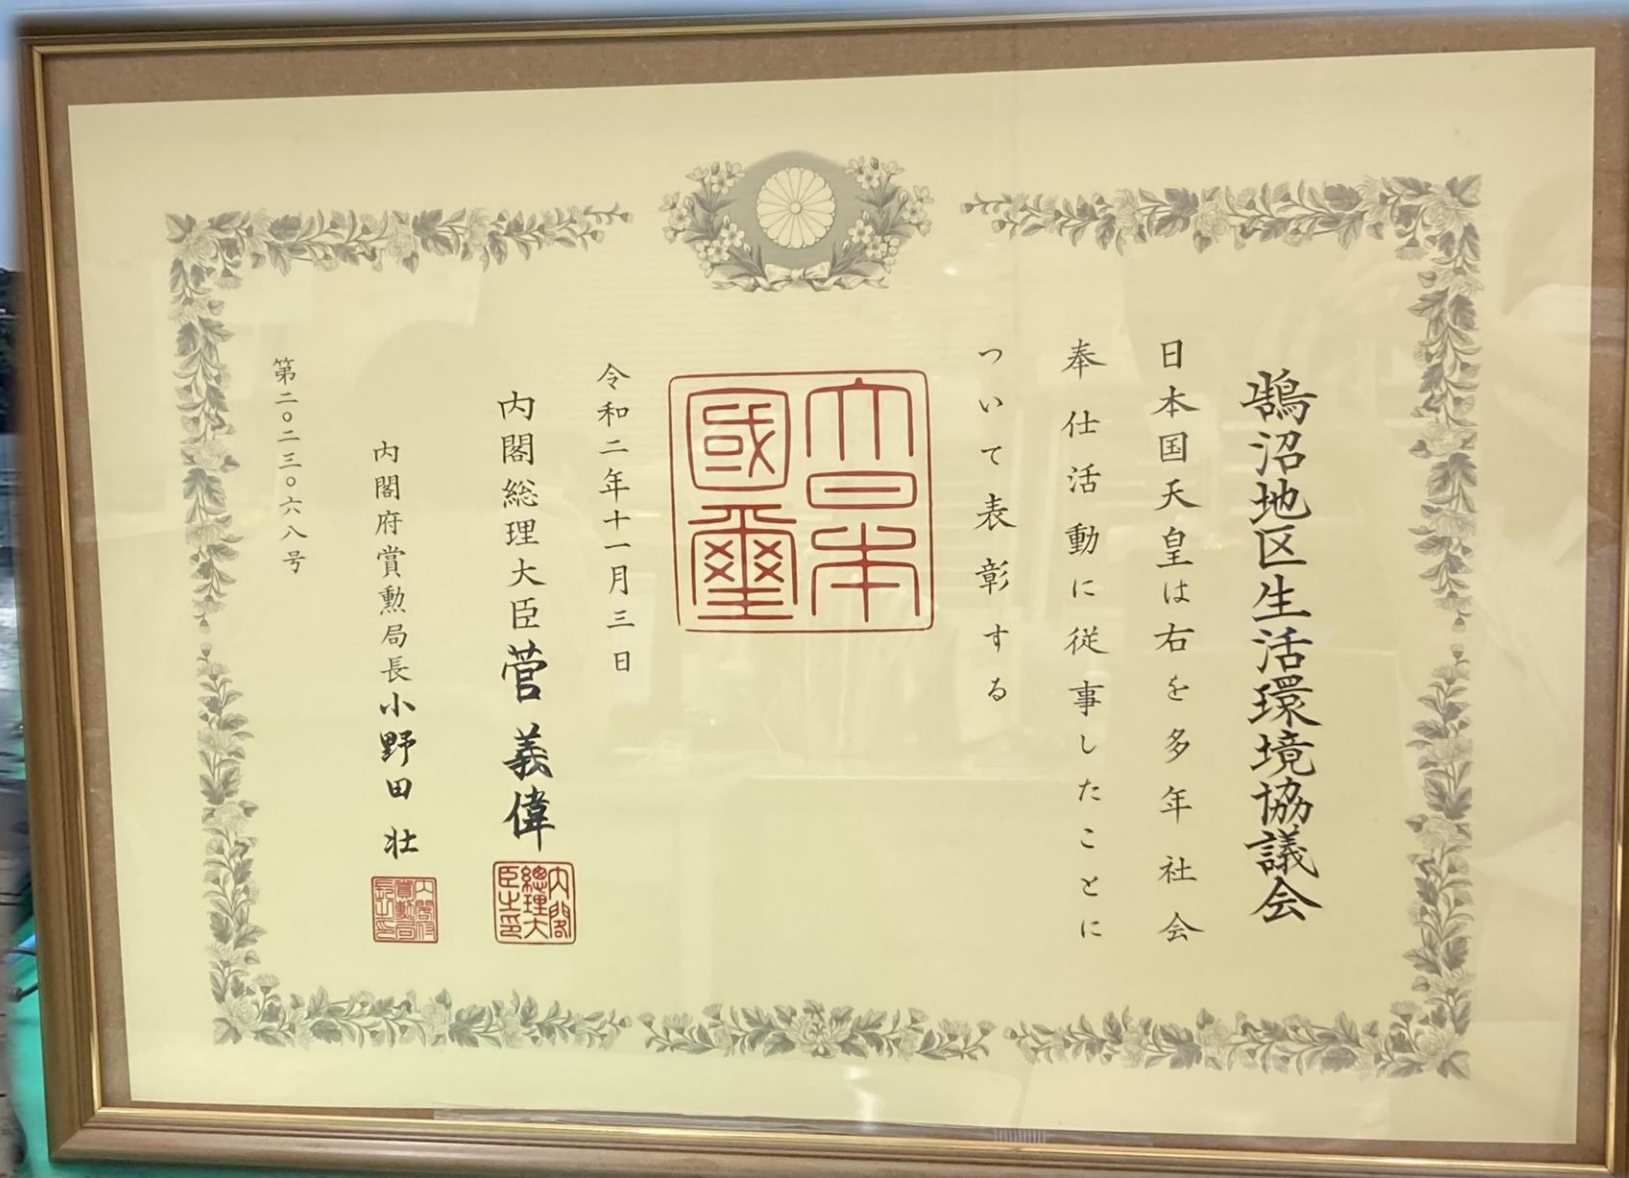 鵠沼地区生活環境協議会
日本国天皇は右を多年社会
奉仕活動に従事したことに
ついて表彰する
大日本國璽
令和二年十一月三日
内閣総理大臣菅義偉
内閣總理大臣之印
内閣府賞勲局長小野田壮
内閣府賞勲局長之印
第二〇二三〇六八号